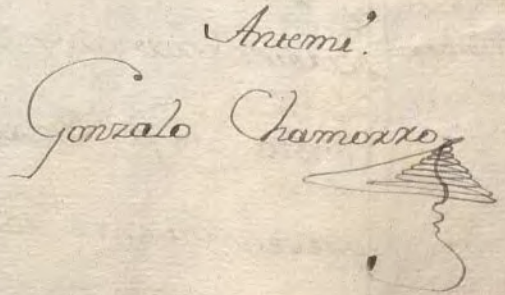 Antemi.
Gonzalo Chamorro